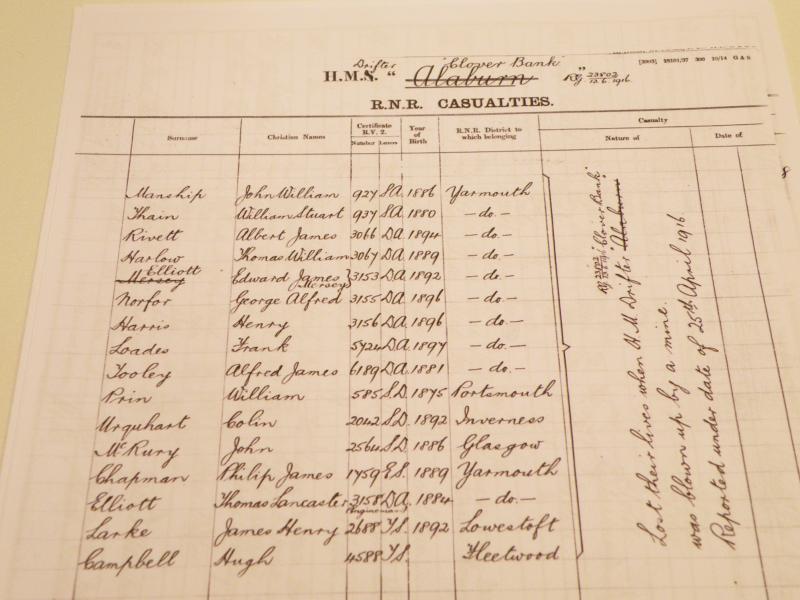 Drifter "Clover Bank"
H.M.S. " Alaburn " Rg 23802 13.6.1916
[3003] 28101/37 300 10/14 G & S
R.N.R. CASUALTIES.
Surname Christian Names Certificate R.V. 2. Number Letters Year of Birth R.N.R. District to which belonging Casualty Nature of Date of
Manship John William 927 S.A. 1886 Yarmouth
Thain William Stuart 937 S.A. 1880 — do. —
Rivett Albert James 3066 D.A. 1894 — do. —
Harlow Thomas William 3067 D.A. 1889 — do. —
Mersey Elliott Edward James Mersey 3153 D.A. 1892 — do. —
Norfor George Alfred 3155 D.A. 1896 — do. —
Harris Henry 3156 D.A. 1896 — do. —
Loades Frank 5724 D.A. 1897 — do. —
Tooley Alfred James 6189 D.A. 1881 — do. —
Prin William 585 S.D. 1875 Portsmouth
Urquhart Colin 2042 S.D. 1892 Inverness
McRury John 2564 S.D. 1886 Glasgow
Chapman Philip James 1759 E.S. 1889 Yarmouth
Elliott Thomas Lancaster (Engineman) 3158 D.A. 1884 — do. —
Larke James Henry 2688 T.S. 1892 Lowestoft
Campbell Hugh 4588 T.S. Fleetwood
"Clover Bank"
Lost their lives when H.M. Drifter Alaburn
was blown up by a mine.
Reported under date of 25th April 1916
8